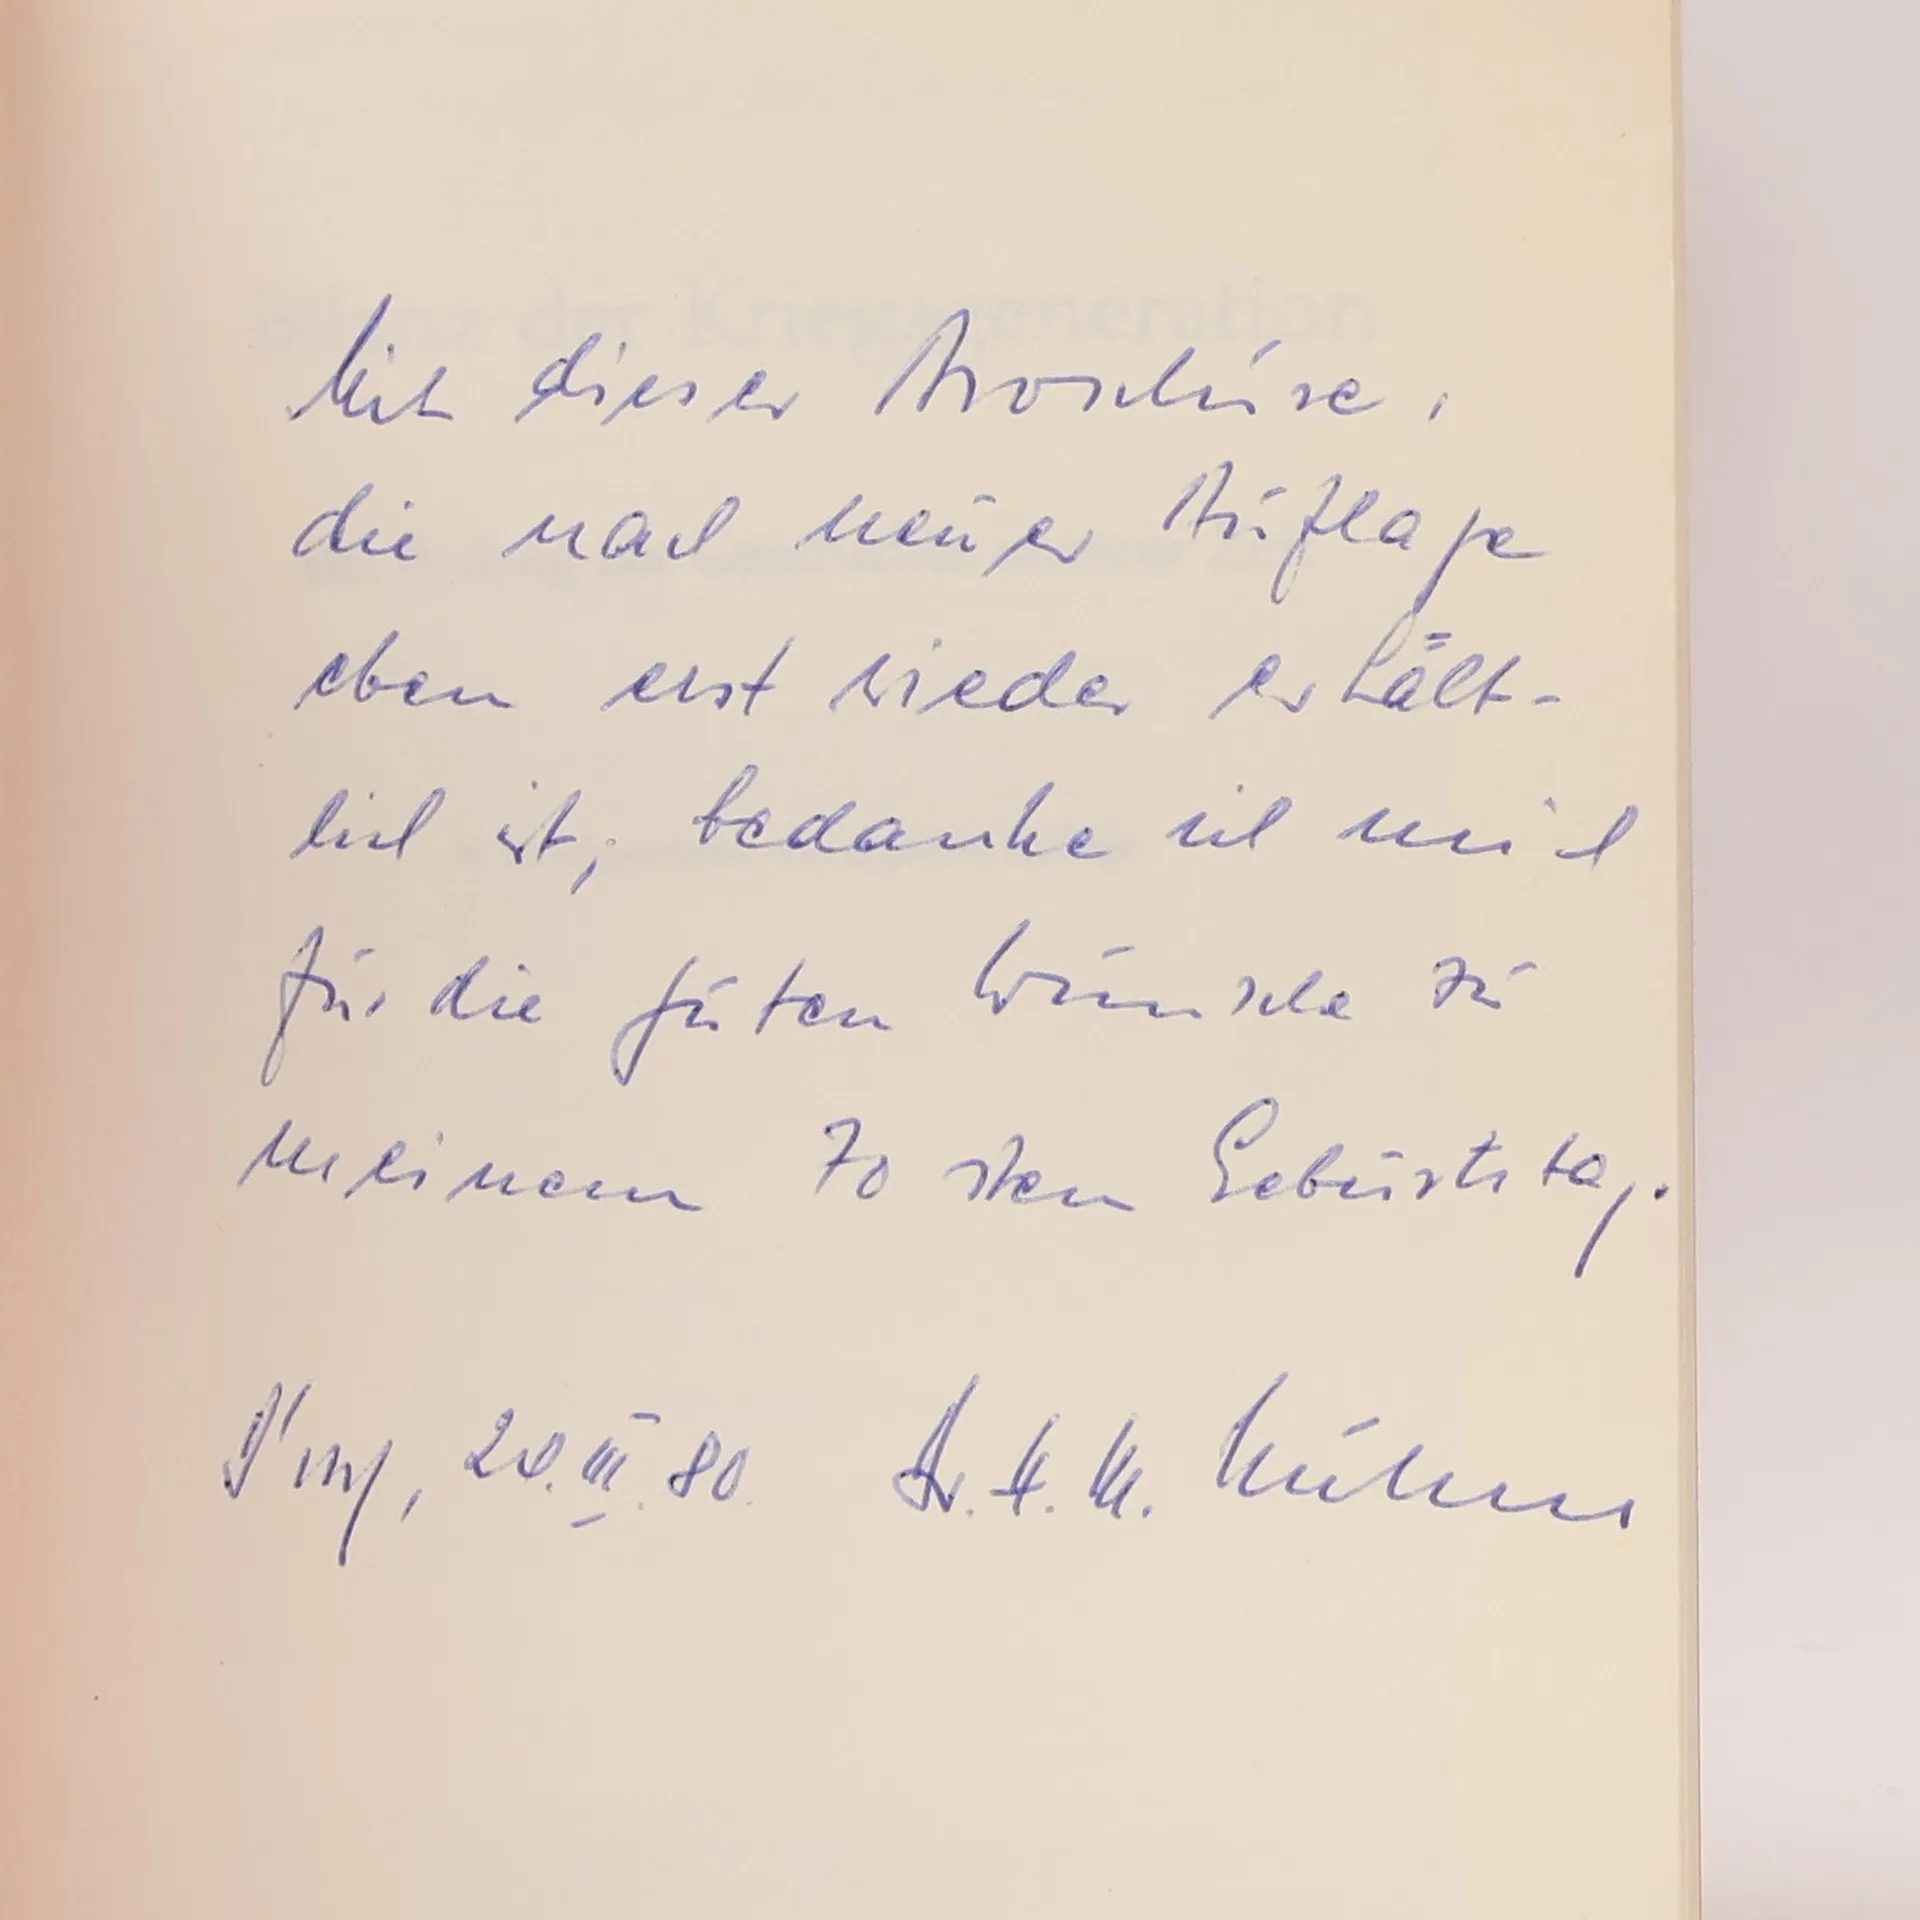 Mit dieser Broschüre,
der Kriegsgeneration
die nach neuer Auflage
eben erst wieder erhält-
lich ist, bedanke ich mich
für die guten Wünsche zu
meinem 70 sten Geburtstag.
20.III.80. Dr. H. M.